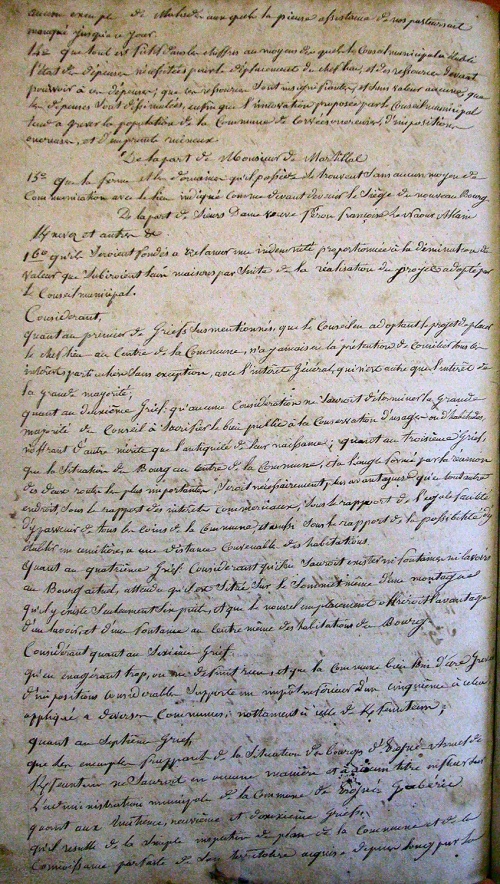 aucun exemple de Malade auxquels la pieuse assistance de nos pasteurs ait
manqué jusqu'à ce jour.
14° que tout est fictif dans les chiffres au moyen desquels le Conseil municipal a établi
l'état de dépenses nécessitées par le déplacement du chef lieu, et des ressources devant
pourvoir à ces dépenses; que ces ressources sont insignifiantes, et sans valeur aucune, que
les dépenses sont dissimulées, enfin que l'innovation proposée par le Conseil municipal
tend à grever la population de la Commune de Corvées onéreuses, d'impositions
énormes, et d'emprunts ruineux.
De la part de Monsieur de
15° que la ferme et les domaines qu'il possède se trouvent sans aucun moyen de
Communication avec le lieu indiqué comme devant devenir le Siège du nouveau Bourg.
De la part de veuve françoise Alain
et autres
16° qu'ils seroient fondés à réclamer une indemnité proportionnée à la diminution de
valeur que subiroient leurs maisons par suite de la réalisation du projet adopté par
le Conseil municipal.
Considérant,
quant au premier des Griefs susmentionnés, que le Conseil en adoptant le projet de placer
le chef lieu au Centre de la Commune, n'a jamais eu la prétention de concilier tous les
intérêts particuliers sans exception, avec l'intérêt Général, qui n'est autre que l'intérêt de
la grande majorité;
quant au deuxième Grief: qu'aucune Considération ne sauroit déterminer la Grande
majorité du Conseil à sacrifier le bien public à la Conservation d'usages ou d'habitudes,
n'offrant d'autre mérite que l'antiquité de leur naissance; quant au troisième Grief,
que la Situation du Bourg au Centre de la Commune, et à l'angle formé par la
des deux routes les plus importantes, seroit nécessairement plus avantageuse qu'en tout autre
endroit sous le rapport des intérêts commerciaux, sous le rapport de l'égale facilité
d'y parvenir de tous les coins de la Commune et aussi sous le rapport de la possibilité d'y
établir un cimetière à une distance Convenable des habitations.
Quant au quatrième Grief. Considérant qu'il ne sauroit exister ni fontaine ni lavoirs
au Bourg actuel, attendu qu'il est Situé sur le Sommet même d'une montagne
qu'il y existe seulement un puits, et que le nouvel emplacement offriroit l'avantage
d'un lavoir et d'une fontaine au Centre même des habitations du Bourg.
Considérant quant au Sixième Grief.
qu'en exagérant trop, on ne détruit rien, et que la Commune bien loin d'être Grevée
d'impositions considérables supporte un impôt inférieur d'un cinquième à celui
appliqué à diverses Communes, nottament à celle de
quant au Septième Grief,
que les exemples de la Situation des bourgs d'
ne sauroit en aucune manière et à aucun titre influer sur
l'administration municipale de la Commune de Gabéric.
quant aux huitième, neuvième et douzième Griefs,
qu'il résulte de la simple inspection du plan de la Commune et de la
connoissance parfaite de son territoire acquise depuis long par le